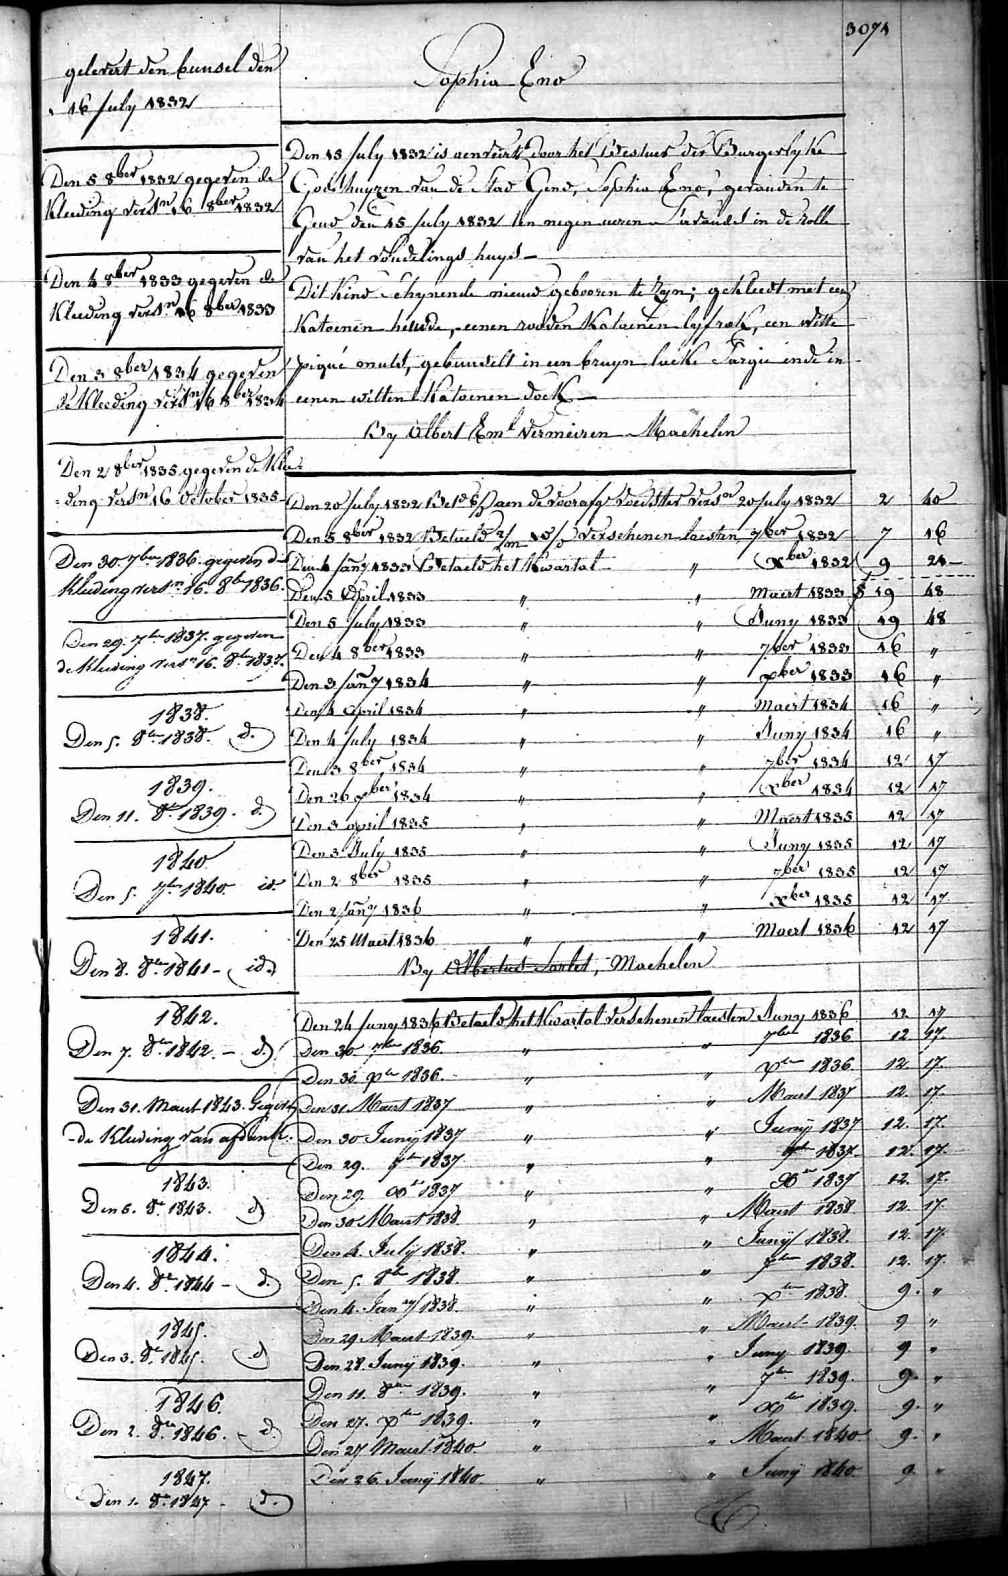 3071
Sophia Eno
gelevert den bunsel den
16 July 1832
Den 5 8ber 1832 gegeven de
Kleeding versn 16 8ber 1832
Den 4 8ber 1833 gegeven de
Kleeding versn 16 8ber 1833
Den 3 8ber 1834 gegeven
de Kleeding versn 16 8ber 1834
Den 2 8ber 1835 gegeven de Klee
=ding versn 16 October 1835
Den 30 7ber 1836. gegeven de
Kleeding versn 16. 8br 1836.
Den 29. 7br 1837. gegeven
de Kleeding versn 16. 8br 1837.
1838.
Den 5. 8br 1838. d.
1839.
Den 11. 8br 1839. d.
1840
Den 5. 7br 1840. id.
1841.
Den 8. 8br 1841 - id.
1842.
Den 7. 8br 1842. - d.
Den 31. Maert 1843. Gegev
de Kleeding van
1843.
Den 6. 8br 1843. d
1844.
Den 4. 8br 1844 - d.
1845.
Den 3. 8br 1845. d
1846.
Den 2. 8br 1846. - d.
1847.
Den 1. 8br 1847 - d.
Den 15 July 1832 is aenveirt door het Bestuer der Burgerlyke
Godshuyzen van de Stad Gend, Sophia Eno, gevonden te
Gend den 15 July 1832 ten negen uren s'avonds in de rolle
van het vondelings huys
Dit Kind schynende nieuw gebooren te zyn; gekleedt met een
Katoenen hemde, eenen rooden Katoenen lyfrok, een witte
piqué muts, gebundelt in een bruyn lacke Sargie ende in
eenen witten Katoenen doek
By Albert Eml Vermeiren Machelen
Den 20 July 1832 aen de voorafg Voedster versn 20 July 1832 2 40
Den 5 8ber 1832 Betaeld verschenen laesten 7ber 1832 7 16
Den 4 Jany 1833 Betaeld het Kwartal " Xber 1832 9 24
Den 5 April 1833 " " Maert 1833 19 48
Den 5 July 1833 " " Juny 1833 19 48
Den 4 8ber 1833 " " 7ber 1833 16 "
Den 3 Jany 1834 " " xber 1833 16 "
Den 4 April 1834 " " Maert 1834 16 "
Den 4 July 1834 " " Juny 1834 16 "
Den 3 8ber 1834 " " 7ber 1834 12 17
Den 26 xber 1834 " " Xber 1834 12 17
Den 3 april 1835 " " Maert 1835 12 17
Den 3 July 1835 " " Juny 1835 12 17
Den 2 8ber 1835 " " 7ber 1835 12 17
Den 2 Jany 1836 " " Xber 1835 12 17
Den 25 Maert 1836 " " Maert 1836 12 17
By Albertus Sarlet, Machelen
Den 24 Juny 1836 Betaeld het Kwartal verschenen laesten Juny 1836 12 17
Den 30 7ber 1836 " " 7ber 1836 12 17.
Den 30. Xber 1836. " " Xber 1836. 12 17.
Den 31 Maert 1837 " " Maert 1837 12. 17.
Den 30 Junij 1837 " " Junij 1837 12. 17.
Den 29. 7br 1837 " " 7br 1837. 12. 17.
Den 29. Xbr 1837 " " Xbr 1837 12. 17.
Den 30 Maert 1838 " " Maert 1838 12. 17.
Den 4. Julij 1838. " " Junij 1838. 12. 17.
Den 5. 8br 1838. " " 7ber 1838. 12. 17.
Den 4. Jany 1838. " " Xber 1838. 9. "
Den 29 Maert 1839. " " Maert 1839. 9 "
Den 28. Junij 1839. " " Juny 1839. 9 "
Den 11. 8br 1839. " " 7br 1839. 9. "
Den 27. Xbr 1839. " " Xbr 1839. 9. "
Den 27 Maert 1840. " " Maert 1840 9. "
Den 26. Junij 1840. " " Junij 1840. 9. "